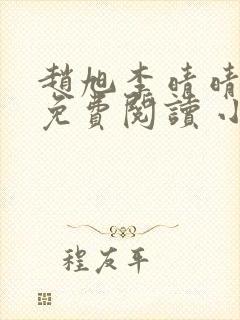 趙旭李晴晴
免費閱讀小
程友平